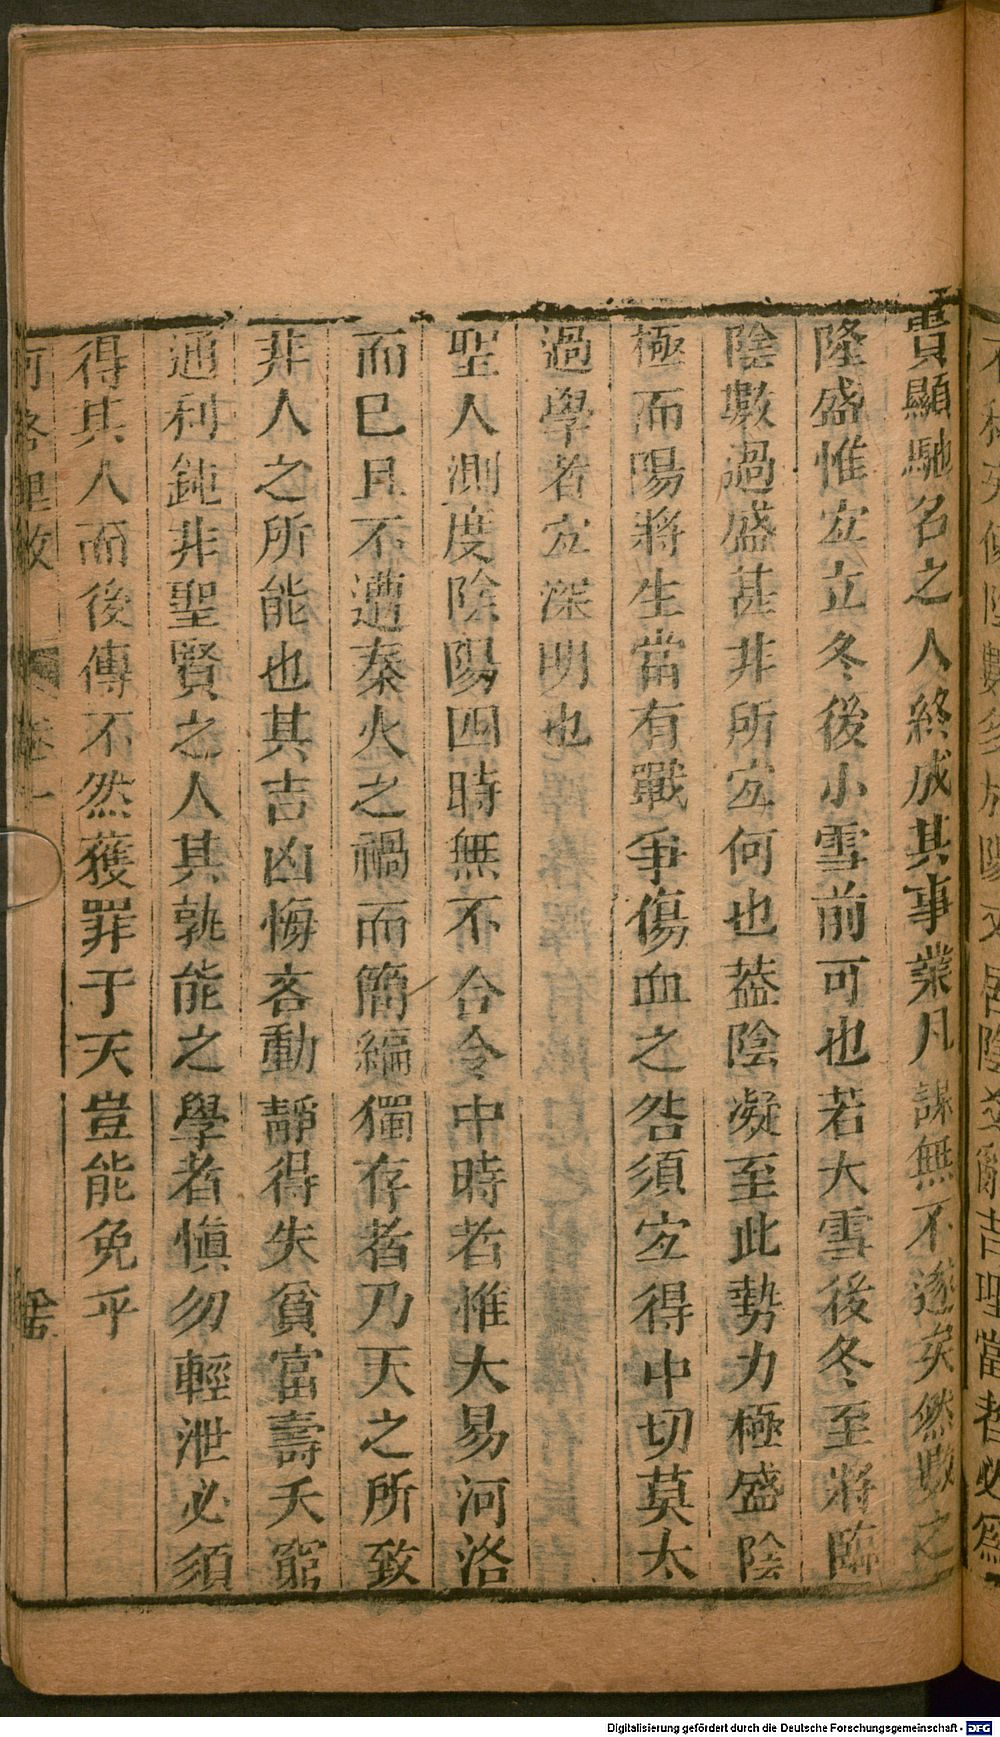 貴顯馳名之人終成其事業凡謀無不遂矣然數之
隆盛惟宐立冬後小雪前可也若大雪後冬至將臨
陰數過盛甚非所宐何也葢陰凝至此勢力極盛陰
極而陽將生當有戰爭傷血之咎須宐得中切莫太
過學者宐深明也
聖人測度陰陽四時無不合令中時者惟大易河洛
而巳且不遭秦火之禍而簡編獨存者乃天之所致
非人之所能也其吉凶悔吝動靜得失貧富壽夭窮
通利鈍非聖賢之人其孰能之學者愼勿輕泄必須
得其人而後傳不然獲罪于天豈能免乎
河洛理數 卷一
Digitalisierung gefördert durch die Deutsche Forschungsgemeinschaft - DFG